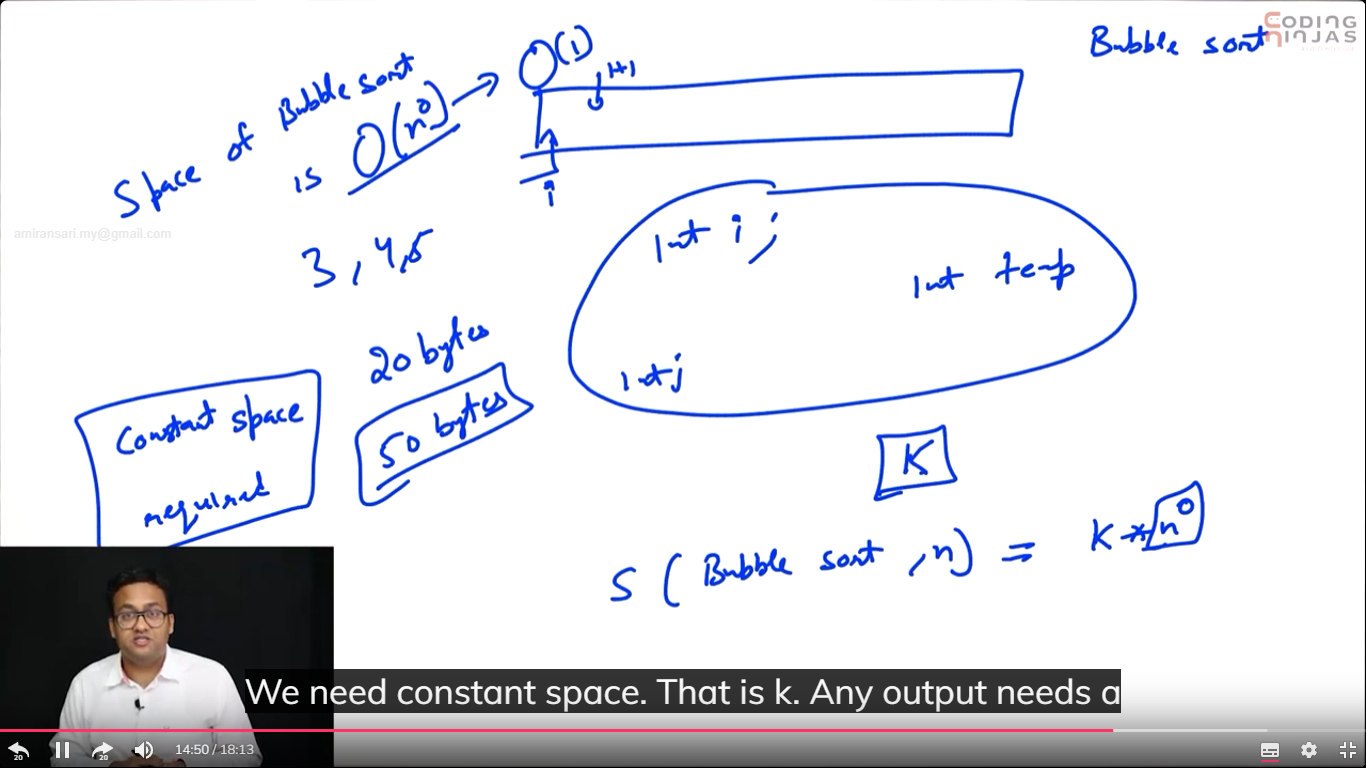 CODING NINJAS
Bubble sort
Space of Bubble sort
is O(n⁰) → O(1)
i+1
i
amiransari.my@gmail.com
3, 4, 5
int i ;
int temp
int j
20 bytes
50 bytes
Constant space
required
K
S ( Bubble sort , n ) = K * n⁰
We need constant space. That is k. Any output needs a
20
20
14:50 / 18:13